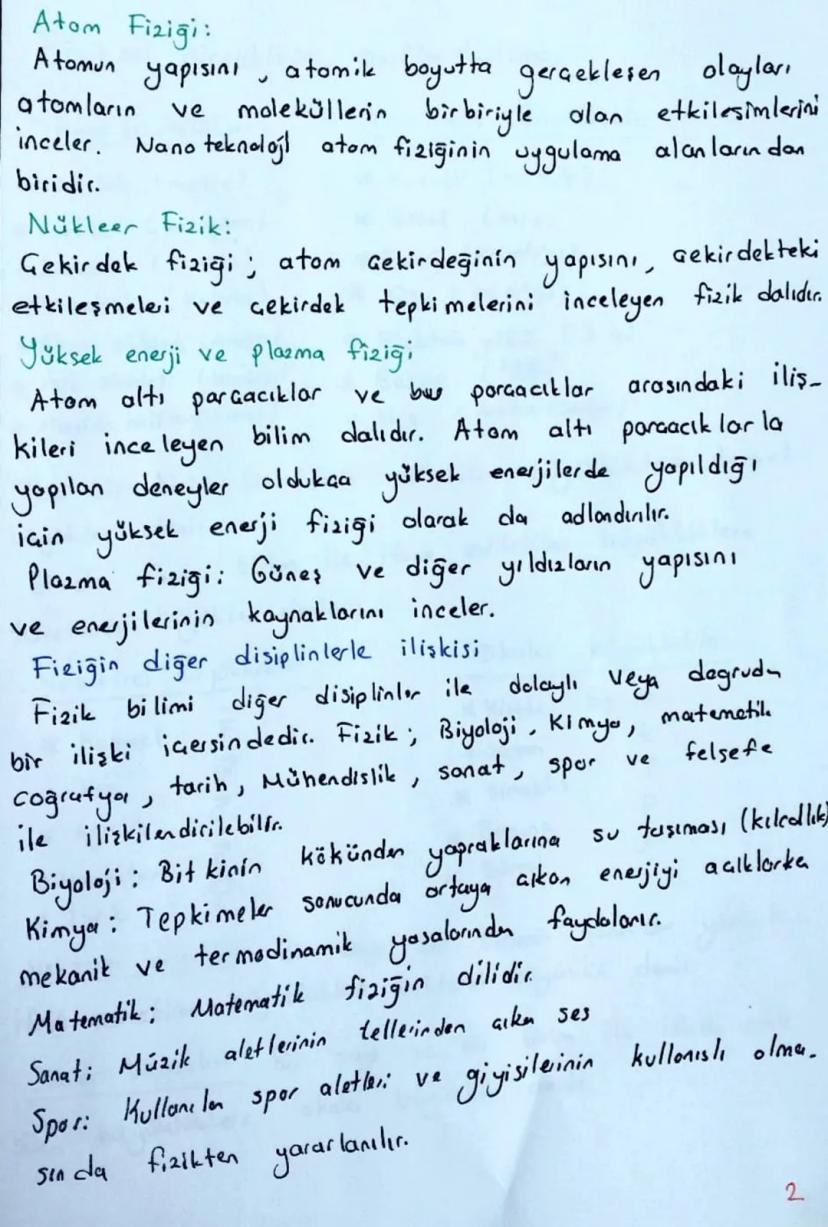 Atom Fiziği:
Atomun yapısını, atomik boyutta gerçekleşen olayları
atomların ve moleküllerin birbiriyle olan etkileşimlerini
inceler. Nano teknoloji atom fiziğinin uygulama alanlarından
biridir.
Nükleer Fizik:
Çekirdek fiziği; atom çekirdeğinin yapısını, çekirdekteki
etkileşmeleri ve çekirdek tepkimelerini inceleyen fizik dalıdır.
Yüksek enerji ve plazma fiziği
Atom altı parçacıklar ve bu parçacıklar arasındaki iliş-
kileri inceleyen bilim dalıdır. Atom altı parçacıklarla
yapılan deneyler oldukça yüksek enerjilerde yapıldığı
için yüksek enerji fiziği olarak da adlandırılır.
Plazma fiziği: Güneş ve diğer yıldızların yapısını
ve enerjilerinin kaynaklarını inceler.
Fiziğin diğer disiplinlerle ilişkisi
Fizik bilimi diğer disiplinler ile dolaylı veya dogrudn
bir ilişki içersindedir. Fizik; Biyoloji, Kimya, matematik
coğrafya, tarih, Mühendislik, sanat, spor ve felsefe
ile ilişkilendirilebilir.
Biyoloji: Bitkinin kökünden yapraklarına su taşıması (kılcallık)
Kimya: Tepkimeler sonucunda ortaya çıkan enerjiyi açıklarke
mekanik ve termodinamik yasalarından faydalanır.
Matematik: Matematik fiziğin dilidir.
Sanat: Müzik aletlerinin tellerinden çıkan ses
Spor: Kullanılan spor aletleri ve giyisilerinin kullanışlı olma-
sında fizikten yararlanılır.
2